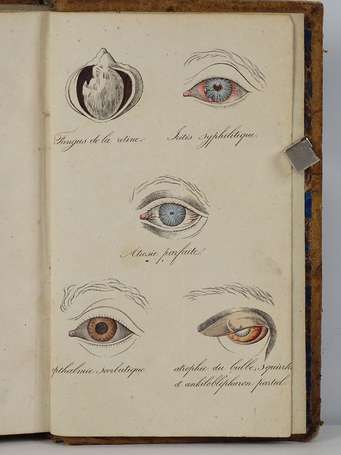 Fungus de la retine.
Iritis syphilitique.
Atresie parfaite.
opthalmie scorbutique
atrophie du bulbe, Squirrhe
et ankiloblépharon partiel